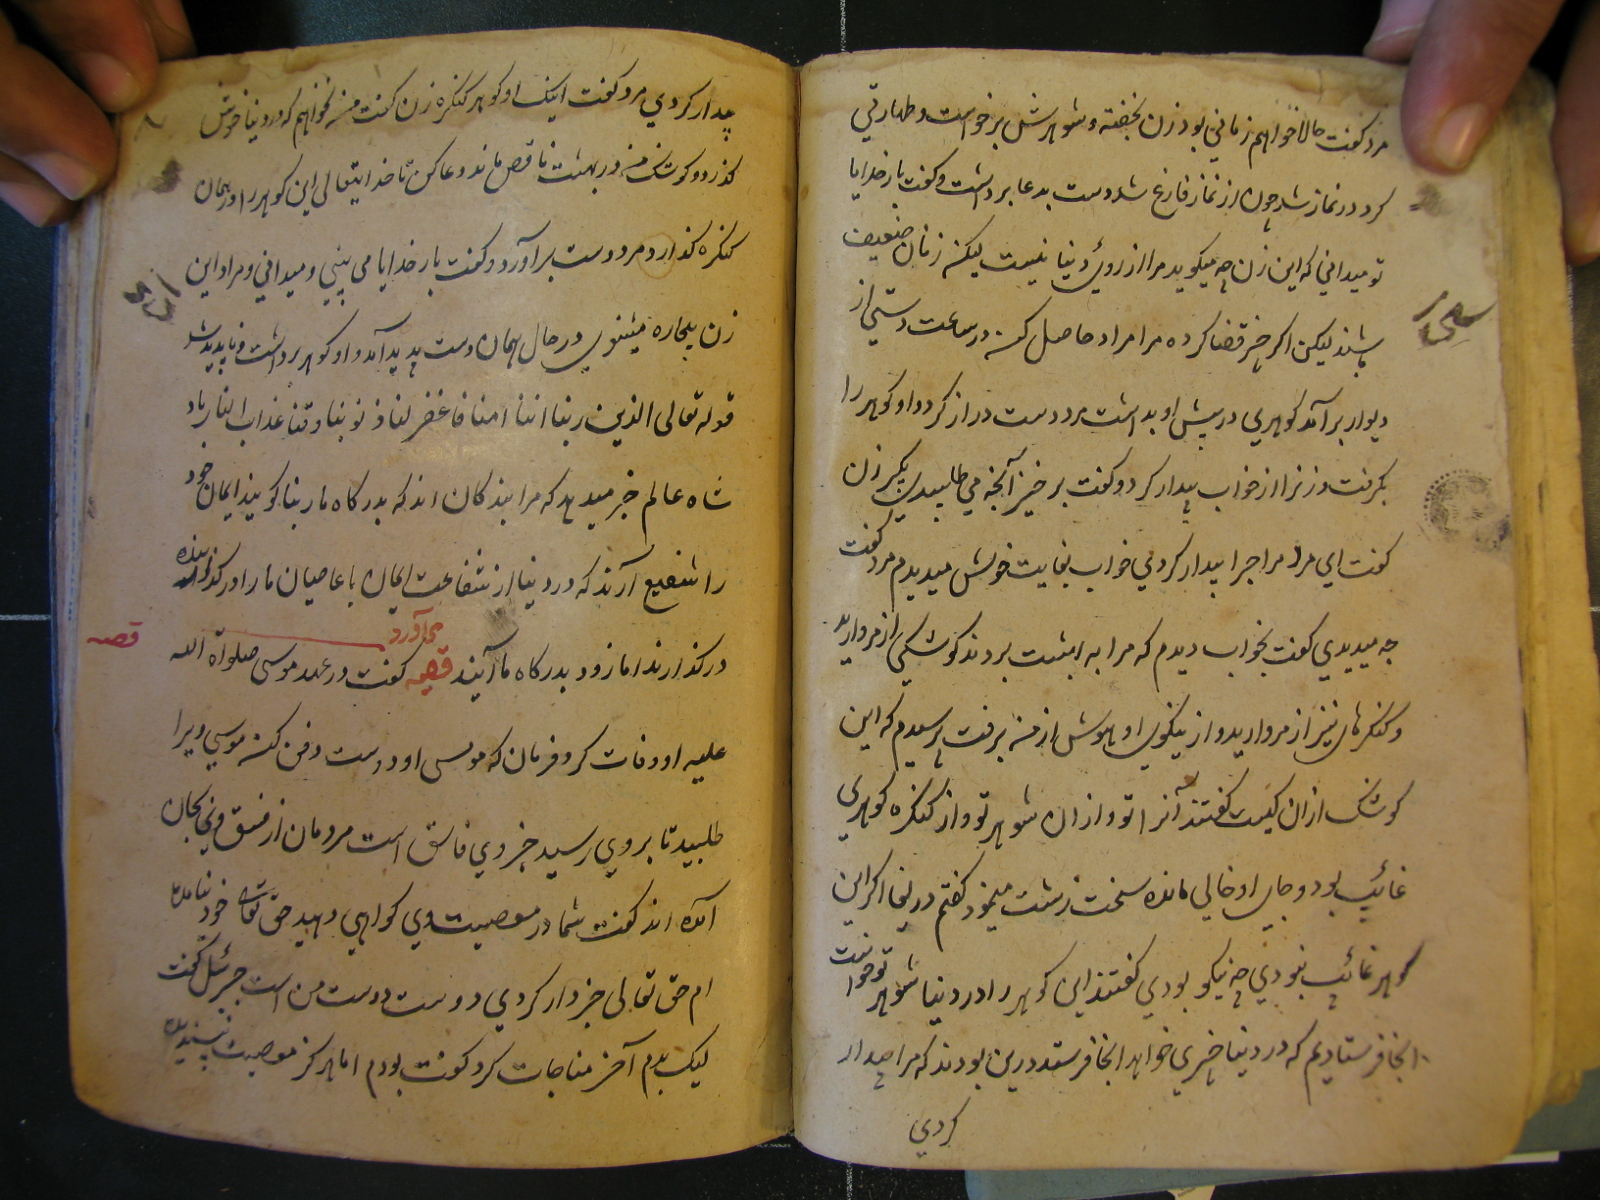 مرد گفت حالا خواهم زمانی بود زن بخفته و شوهرش برخواست و طهارتی
کرد در نماز شد چون از نماز فارغ شد دست بدعا برداشت و گفت بار خدایا
تو میدانی که این زن چه میگوید مرا از روی دنیا نیست لیکن زنان ضعیف
باشند لیکن اگر خیر قضا کرده مرا مراد حاصل کن در ساعت دستی از
دیوار برآمد گوهری در پیش او بداشت مرد دست دراز کرد و او گوهر را
بگرفت و زنرا از خواب بیدار کرد و گفت برخیز آنچه می طلبیدی بگیر زن
گفت ای مرد مرا چرا بیدار کردی خواب بغایت خوش میدیدم مرد گفت
چه میدیدی گفت بخواب دیدم که مرا به بهشت بردند کوشکی از مروارید
و کنگرهای نیز از مروارید و از نیکوی او هوش از من برفت پرسیدم که این
کوشک از ان کیست گفتند آنرا تو و از ان شوهر تو و از کنگره گوهری
غائب بود و جای او خالی مانده سخت زشت مینمود گفتم دریغا اگر این
گوهر غائب نبودی چه نیکو بودی گفتند این گوهر را در دنیا شوهر تو خواست
انجا فرستادیم که در دنیا خیری خواهد انجا فرستد درین بودند که مرا بیدار
کردی
بیدار کردی مرد گفت اینک او گوهر کنگره زن گفت من نخواهم که در دنیا خوش
گذرد و کوشک من در بهشت ناقص ماند دعا کن تا خدایتعالی این گوهر را در همان
کنگره گذارد مرد دست برآورد و گفت بار خدایا می بینی و میدانی و مراد این
زن بیچاره میشنوی در حال همان دست پدید آمد و او گوهر برداشت و ناپدید شد
قوله تعالی الذین ربنا اننا امنا فاغفر لنا ذنوبنا وقنا عذاب النار باد
شاه عالم خبر میدهد که مرا بندگان اند که بدرگاه ما ربنا گویند ایمان خود
را شفیع آرند که در دنیا از شفاعت ایمان با عاصیان ما را درگذرانیده
درگذارند اما زود بدرگاه ما آیند قصه آورد گفت در عهد موسی صلواة الله
قصه
علیه او وفات کرد فرمان که موسی او دوست دفن کن موسی ویرا
طلبید تا بروی رسید خبر وی فاسق است مردمان از فسق وی بجان
آمده اند گفت شما در معصیت وی گواهی دهید حق تعالی خود
ام حق تعالی خبردار کردی دوست دوست من است جبرئیل گفت
لیک بدم آخر مناجات کرد گفت بودم اما هرگز معصیت نپسندیده